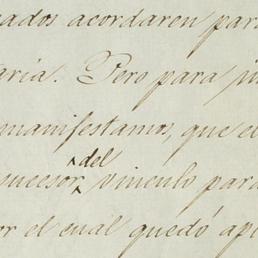 ados acordaren par
aria. Pero para ju
manifestamos, que e
sucesor del vinculo para
or el cual quedó ap